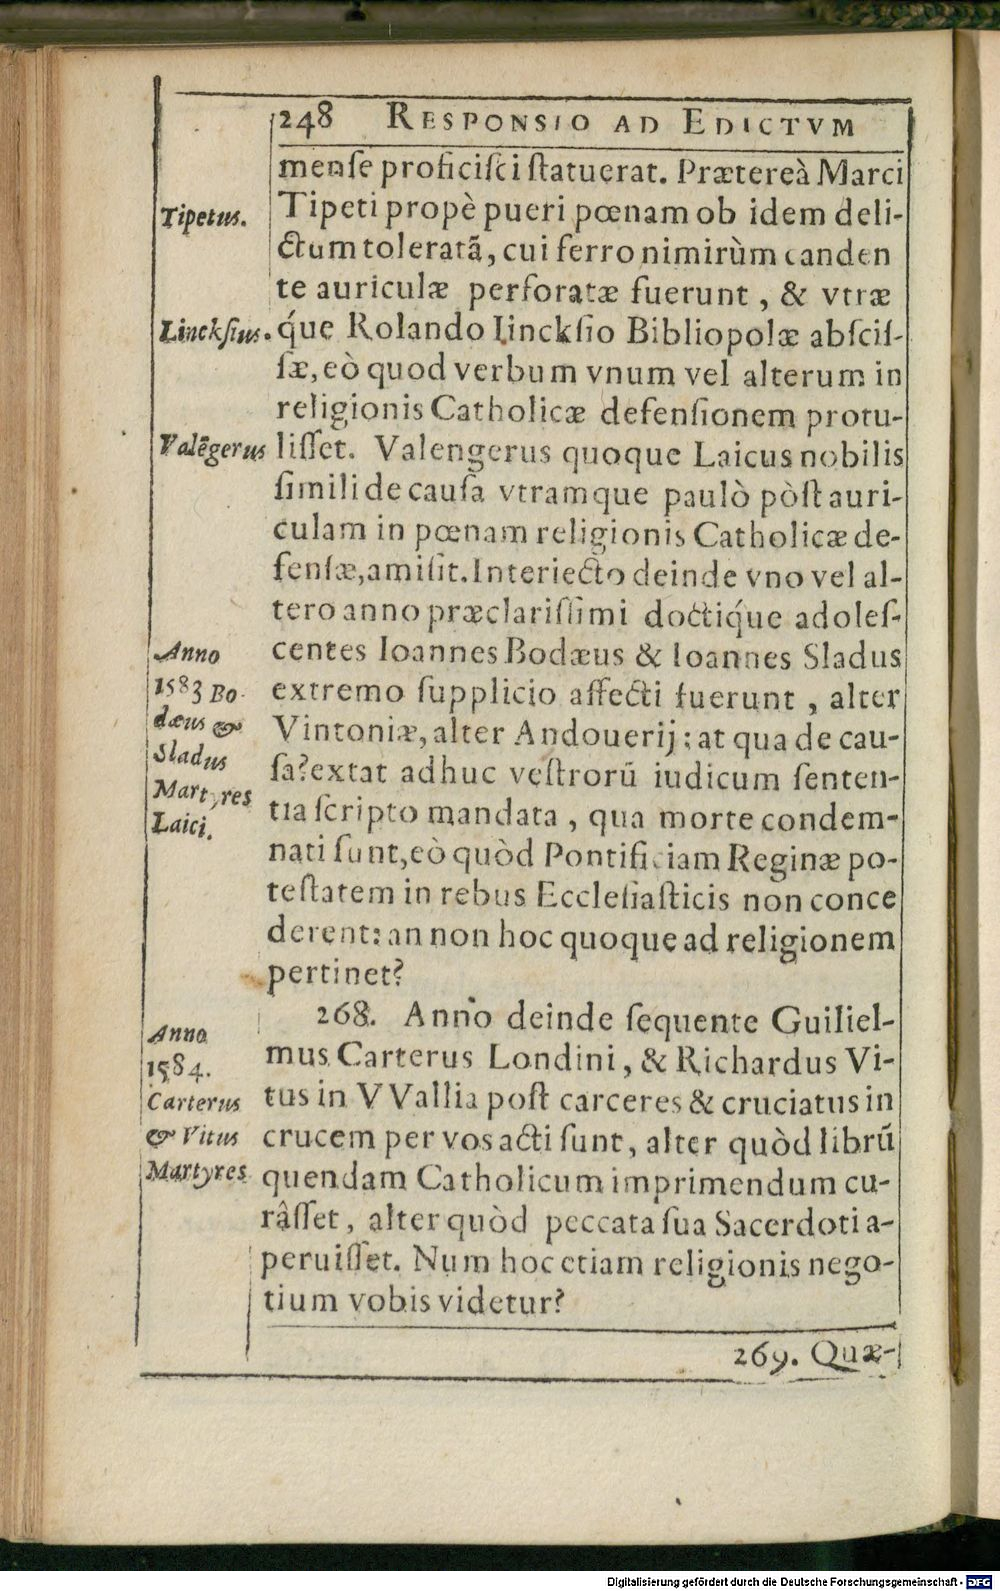 248 RESPONSIO AD EDICTVM
menſe proficiſci ſtatuerat. Prætereà Marci
Tipetus.
Tipeti propè pueri pœnam ob idem deli-
ctum toleratã, cui ferro nimirùm canden
te auriculæ perforatæ fuerunt, & vtræ
Linckſius.
q́ue Rolando Iinckſio Bibliopolæ abſciſ-
ſæ, eò quod verbum vnum vel alterum in
religionis Catholicæ defenſionem protu-
Valẽgerus
liſſet. Valengerus quoque Laicus nobilis
ſimili de cauſa vtramque paulò pòſt auri-
culam in pœnam religionis Catholicæ de-
fenſæ, amiſit. Interiecto deinde vno vel al-
tero anno præclariſſimi doctiq́ue adoleſ-
Anno
1583 Bo-
dæus &
Sladus
Martyres
Laici.
centes Ioannes Bodæus & Ioannes Sladus
extremo ſupplicio affecti fuerunt, alter
Vintoniæ, alter Andouerij: at qua de cau-
ſa? extat adhuc veſtrorũ iudicum ſenten-
tia ſcripto mandata, qua morte condem-
nati ſunt, eò quòd Pontificiam Reginæ po-
teſtatem in rebus Eccleſiaſticis non conce
derent: an non hoc quoque ad religionem
pertinet?
Anno
1584.
Carterus
& Vitus
Martyres
268. Anno deinde ſequente Guiliel-
mus Carterus Londini, & Richardus Vi-
tus in VVallia poſt carceres & cruciatus in
crucem per vos acti ſunt, alter quòd librũ
quendam Catholicum imprimendum cu-
râſſet, alter quòd peccata ſua Sacerdoti a-
peruiſſet. Num hoc etiam religionis nego-
tium vobis videtur?
269. Quæ-
Digitalisierung gefördert durch die Deutsche Forschungsgemeinschaft - DFG